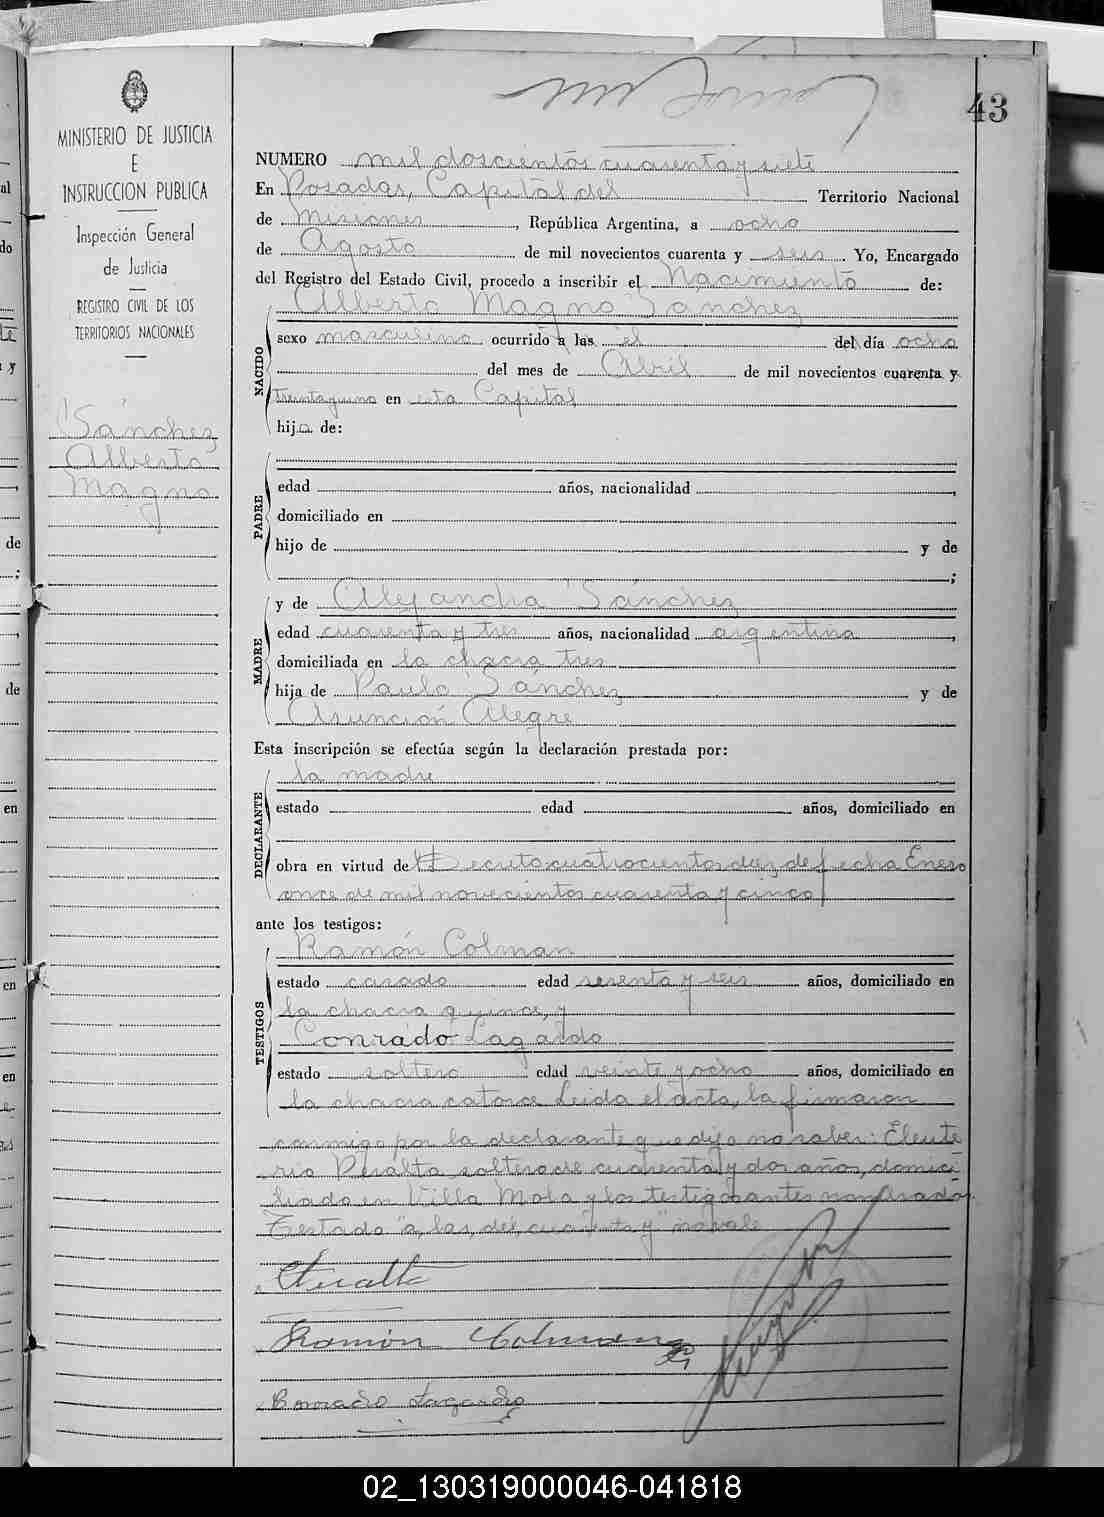 43
MINISTERIO DE JUSTICIA
E
INSTRUCCION PUBLICA
Inspección General
de Justicia
REGISTRO CIVIL DE LOS
TERRITORIOS NACIONALES
Sánchez
Alberto
Magno
NUMERO mil doscientos cuarenta y siete
En Posadas, Capital del Territorio Nacional
de Misiones, República Argentina, a ocho
de Agosto de mil novecientos cuarenta y seis Yo, Encargado
del Registro del Estado Civil, procedo a inscribir el Nacimiento de:
Alberto Magno Sánchez
NACIDO
sexo masculino ocurrido a las el del día ocho
del mes de Abril de mil novecientos cuarenta y
treinta y uno en esta Capital
hijo de:
PADRE
edad años, nacionalidad ,
domiciliado en
hijo de y de
;
MADRE
y de Alejandra Sánchez
edad cuarenta y tres años, nacionalidad argentina,
domiciliada en la chacra tres
hija de Paulo Sánchez y de
Asunción Alegre
Esta inscripción se efectúa según la declaración prestada por:
DECLARANTE
la madre
estado edad años, domiciliado en
obra en virtud del Decreto cuatrocientos diez de fecha Enero
once de mil novecientos cuarenta y cinco
ante los testigos:
TESTIGOS
Ramón Colman
estado casado edad sesenta y seis años, domiciliado en
la chacra quince, y
Conrado Lagardo
estado soltero edad veinte y ocho años, domiciliado en
la chacra catorce Leida el acta, la firmaron
conmigo por la declarante que dijo no saber: Eleute
rio Peralta, soltero de cuarenta y dos años, domici
liado en Villa Mola y los testigos antes nombrados
Testado "a, las, del, cuarenta y" no vale
Ramón Colman
Conrado Lagardo
02_130319000046-041818